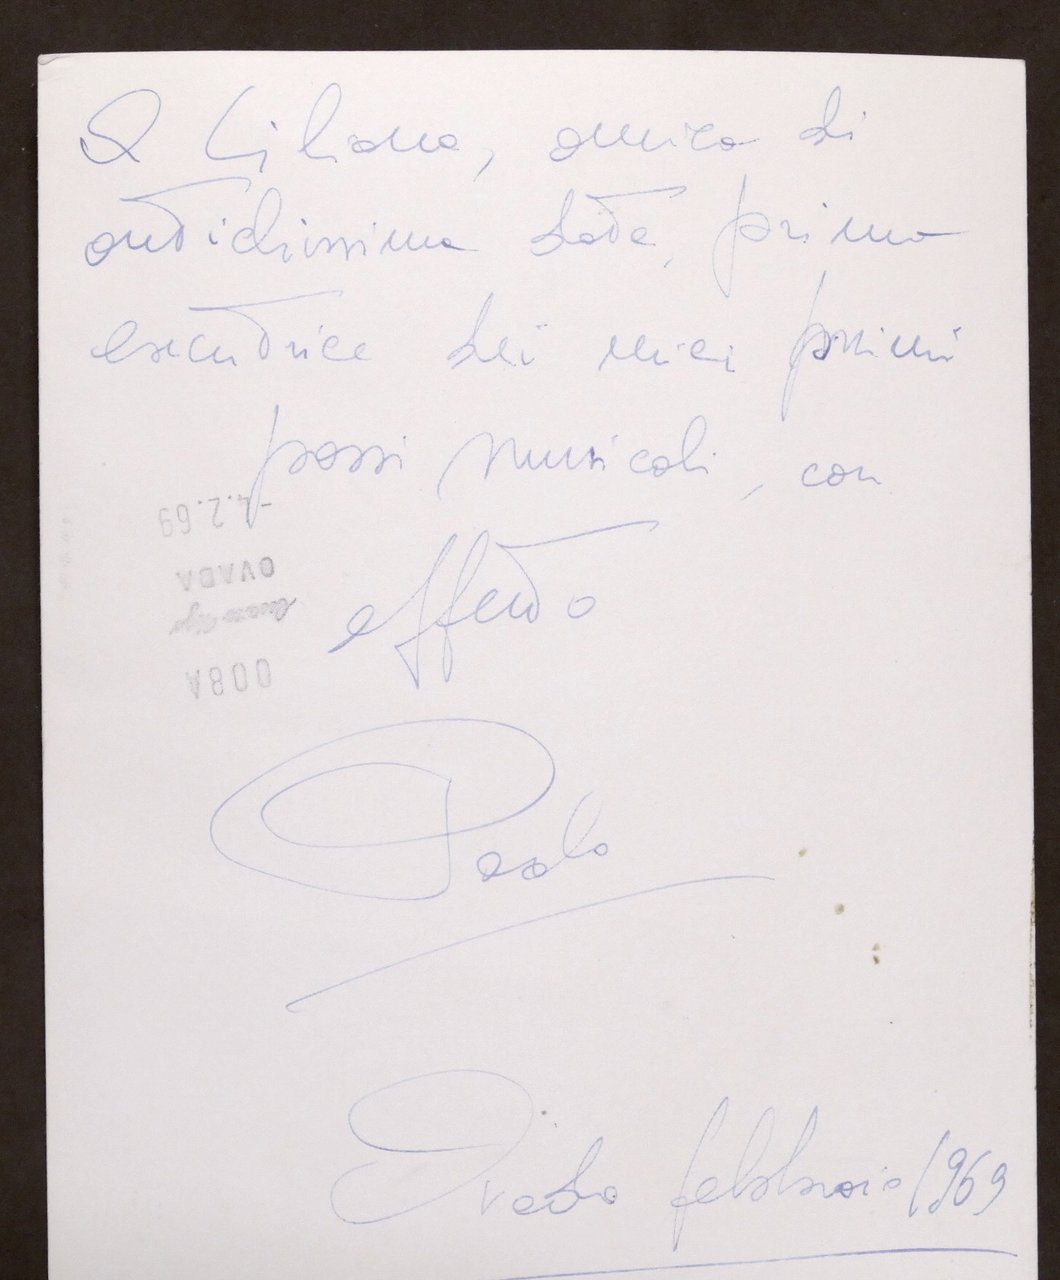 A Liliana, amica di
antichissima data, prima
esecutrice dei miei primi
passi musicali, con
affetto
Paolo
Ovada febbraio 1969
008A
OVADA
-4.2.69